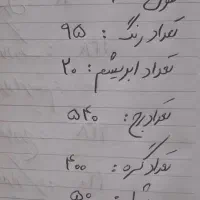 تعداد رنگ : ۹۵
تعداد ابریشم : ۲۰
تعداد رج : ۵۴۰
تعداد گره : ۴۰۰